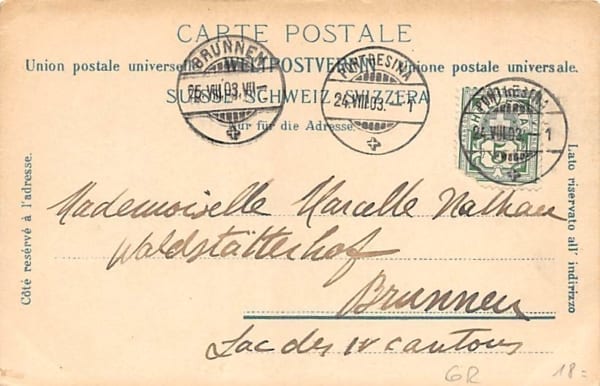 CARTE POSTALE
Union postale universelle. WELTPOSTVEREIN. Unione postale universale.
SUISSE. SCHWEIZ. SVIZZERA.
Nur für die Adresse.
BRUNNEN
25.VIII.03.VII-
PONTRESINA
24.VIII.03.-1
PONTRESINA
24.VIII.03.-1
Côté réservé à l'adresse.
Lato riservato all' indirizzo
Mademoiselle Marcelle Nathan
Waldstätterhof
Brunnen
Lac des IV cantons
GR
18=